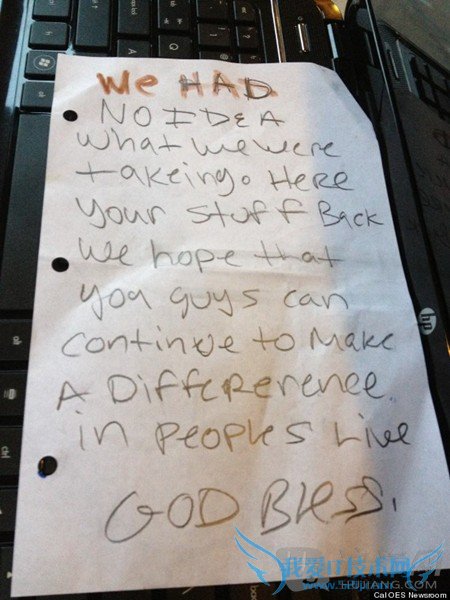 We HAD
NO IDEA
what we were
takeing. Here
your stuff Back
we hope that
you guys can
continue to Make
A Differerence
in peoples Live
GOD Bless.
hp
HUJIANG.COM
Cal OES Newsroom